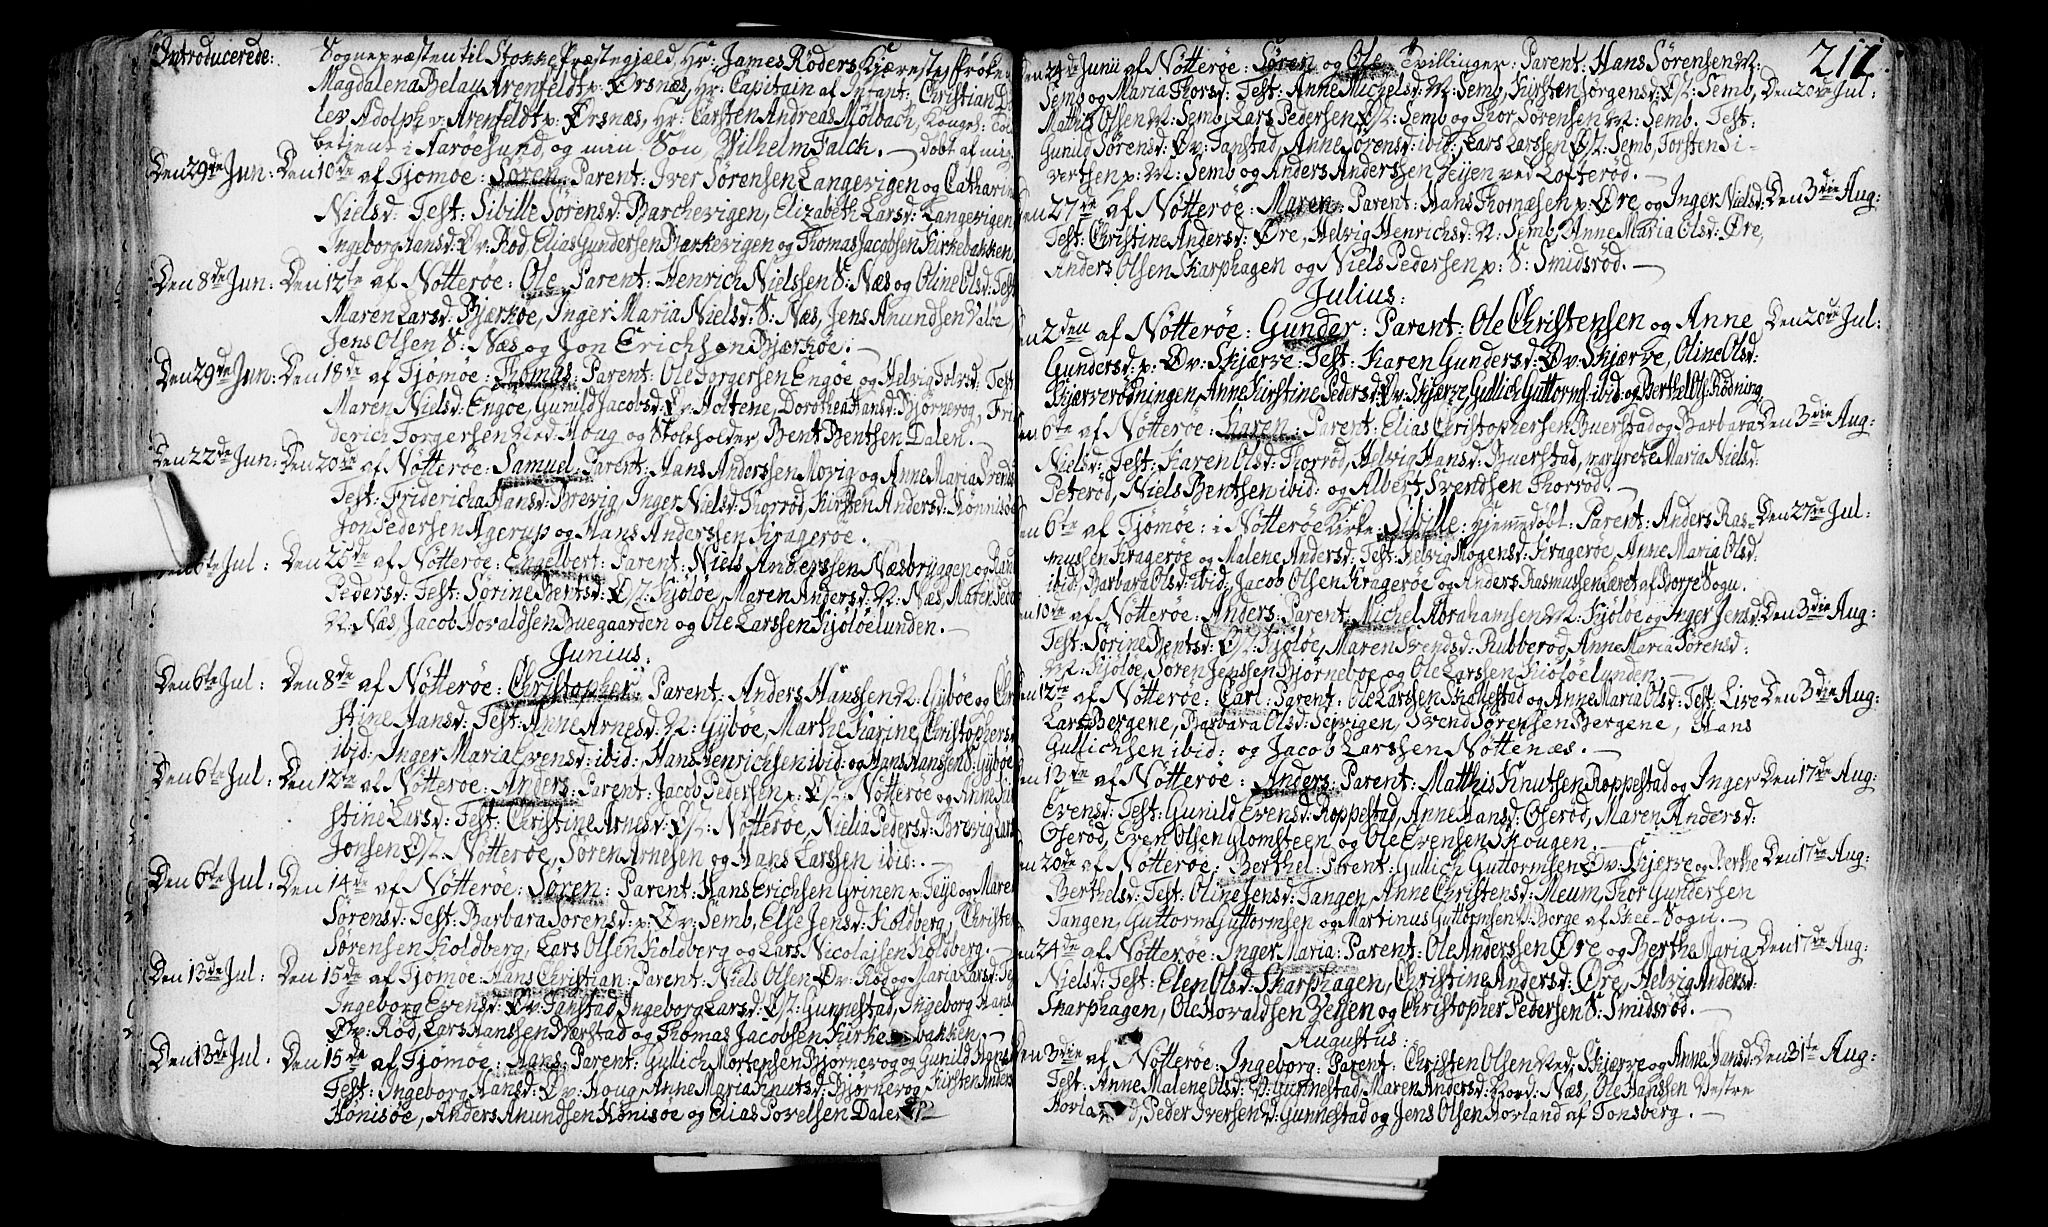 Introducerede:
Sognepræsten til Stokke Præstegjæld, Hr: James Röders Kjæreste Frøken
Magdalena Arenfeldt p: Ørsnæs, Hr: Capitain af Infant: Christian
Adolph v: Arenfeldt p: Ørsnæs, Hr: Carsten Andreas Mølbach, Kongel: Told
betjent i Aarøesund, og min Søn, Wilhelm Falck. döbt af mig.
Den 29de Jun: Den 10de af Tjømøe: Søren: Parent: Iver Sørensen Langevigen og Catharin
Nielsd: Test: Sibille Sørensd: Barchevigen, Elizabeth Larsd: Langevigen
Ingeborg Hansd: Øv: Rød, Elias Gundersen Barkevigen og Thomas Jacobsen Kirkebakken
Den 8de Jun: Den 12te af Nøtterøe: Ole: Parent: Henrich Nielssen S: Næs og Oline Olsd: Test
Maren Larsd: Bjærkøe, Inger Maria Nielsd: S: Næs, Jens Anundsen Valøe
Jens Olsen S: Næs og Jon Erichsen Bjærkøe. –
Den 29de Jun: Den 18de af Tjømøe: Thomas: Parent: Ole Torgersen Engøe og Helvig Tolvsd: Test
Maren Nielsd: Engøe, Gunild Jacobsd: Øv: Holtene, Dorothea Hansd: Bjørnevog, Fri
derich Torgersen Ned: Houg og Stoleholder Bent Bentsen Dalen. –
Den 22de Jun: Den 20de af Nøtterøe: Samuel: Parent: Hans Anderssen Movig og Anne Maria Svends
Test: Fridericha Hansd: Brevig, Inger Nielsd: Thorrød, Kirsten Andersd: Hønnisøe
Jon Pedersen Agerup og Hans Anderssen Kragerøe.
6te Jul: Den 25de af Nøtterøe: Engelbert: Parent: Niels Anderssen Næsbryggen og Ran
Pedersd: Test: Sørine Bertsd: Øst: Kjøløe, Maren Andersd: N: Næs, Maren Jacob
N: Næs, Jacob Hovaldsen Buegaarden og Ole Larssen Kjøløelunden. –
Junius:
Den 6te Jul: Den 8de af Nøtterøe: Christopher: Parent: Anders Hanssen N: Gybøe og Chri
stine Hansd: Test: Anne Arnesd: N: Gybøe, Marthe Karine Christophersd
ibid: Inger Maria Evensd: ibid: Hans Henrichsen ibid: og Hans Hanssen S: Gybøe
Den 6te Jul: Den 12te af Nøtterøe: Anders: Parent: Jacob Pedersen p: Øst: Nøtterøe og Anne
stine Larsd: Test: Christine Arnesd: Øst: Nøtterøe, Nielia Pedersd: Brevig, Lars
Jonsen Øst: Nøtterøe, Søren Arnesen og Hans Larssen ibid: –
Den 6te Jul: Den 14de af Nøtterøe: Søren: Parent: Hans Erichsen Grinen p: Teye og Maren
Sørensd: Test: Barbara Sørensd: p: Øv: Semb, Else Jensd: Koldberg, Christen
Sørensen Koldberg, Lars Olsen Koldberg og Lars Nicolajsen Koldberg. –
Den 13de Jul: Den 15de af Tjømøe: Hans Christian: Parent: Niels Olsen Øv: Rød og Maria Larsd: Test
Ingeborg Evensd: Øv: Tanstad, Ingeborg Larsd: Øst: Gunnestad, Ingeborg Hans
Øv: Rød, Lars Hanssen Næstad og Thomas Jacobsen Kirkebakken. –
Den 13de Jul. Den 15de af Tjømøe: Hans: Parent: Gullich Mortensen Bjørnevog og Gunild Hans
Test: Ingeborg Hansd: Øv: Houg, Anne Maria Knutsd: Bjørnevog, Kirsten Anders
Hønisøe, Anders Anundsen Hønisøe og Elias Tovelsen Dalen
211
Den 24de Junii af Nøtterøe: Søren og Ole: Tvillinger: Parent: Hans Sørensen N:
Semb og Maria Thorsd: Test: Anne Michelsd: N: Semb, Kirsten Jørgensd: Øst: Semb, Den 20de Jul:
Mathis Olsen N: Semb, Lars Pedersen Øst: Semb og Thor Sørensen N: Semb. Test:
Gunild Sørensd: Øv: Tanstad, Anne Sørensd: ibid: Lars Larssen Øst: Semb, Torsten Si-
vertsen p: N: Semb og Anders Anderssen Zeijen ved Lofterød. –
Den 27de af Nøtterøe: Maren: Parent: Hans Thomæsen p: Øre og Inger Nielsd: Den 3die Aug:
Test: Christine Andersd: Øre, Helvig Henrichsd: N: Semb, Anne Maria Olsd: Øre,
Anders Olsen Skarphagen og Niels Pedersen p: S: Smidsrød. –
Julius:
Den 2den af Nøtterøe: Gunder: Parent: Ole Christensen og Anne Den 20de Jul:
Gundersd: p: Øv: Skjærve: Test: Karen Gundersd: Øv: Skjærve, Oline Olsd:
Skjærverødningen, Anne Kirstine Pedersd: Øv: Skjærve, Gullich Guttorms: ibid: og Berthel Rødning
Den 6te af Nøtterøe: Karen: Parent: Elias Christophersen Buerstad og Barbara Den 3die Aug:
Nielsd: Test: Karen Olsd: Thorrød, Helvig Hansd: Buerstad, Margrete Maria Nielsd:
Peterød, Niels Bentsen ibid: og Albert Svendsen Thorrød. –
Den 6te af Tjømøe: i Nøtterøe Kirke: Sibille: Hjemmedøbt: Parent: Anders Ras- Den 27de Jul:
mussen Kragerøe og Malene Andersd: Test: Helvig Mogensd: Kragerøe, Anne Maria Olsd:
ibid: Barbara Olsd: ibid: Jacob Olsen Kragerøe og Anders Rasmussen Leret af Borre Sogn.
Den 10de af Nøtterøe: Anders: Parent: Michel Abrahamsen N: Kjøløe og Inger Jensd: Den 3die Aug:
Test: Sørine Bentsd: Øst: Kjøløe, Maren Svendsd: Rubberød, Anne Maria Sørensd:
N: Kjøløe, Søren Jenssen Bjørneboe og Ole Larssen Kjøløelunden. –
Den 12te af Nøtterøe: Carl: Parent: Ole Larssen Skallestad og Anne Maria Olsd: Test: Live Den 3die Aug:
Larsd: Bergene, Barbara Olsd: Tejevigen, Svend Sørensen Bergene, Hans
Gullichsen ibid: og Jacob Larssen Nøttenæs. –
Den 13de af Nøtterøe: Anders: Parent: Matthis Knutsen Roppestad og Inger Den 17de Aug:
Evensd: Test: Gunild Evensd: Roppestad, Anne Hansd: Oserød, Maren Andersd:
Oserød, Even Olsen Glomsteen og Ole Evensen Skougen. –
Den 20de af Nøtterøe: Berthel: Parent: Gullich Guttormsen Øv: Skjærve og Berthe Den 17de Aug:
Berthelsd: Test: Oline Jensd: Tangen, Anne Christensd: Meum, Thor Gundersen
Tangen, Guttorm Guttormsen og Martinus Guttormsen N: Borge af Skee-Sogn. –
Den 24de af Nøtterøe: Inger Maria: Parent: Ole Anderssen Øre og Berthe Maria Den 17de Aug:
Nielsd: Test: Elen Olsd: Skarphagen, Christine Andersd: Øre, Helvig Andersd:
Skarphagen, Ole Hovaldsen Zeijen og Christopher Pedersen S: Smidsrød. –
Augustus:
Den 3die af Nøtterøe: Ingeborg: Parent: Christen Olsen Ned: Skjærve og Anne Hansd: Den 31te Aug:
Test: Anne Malene Olsd: V: Gunnestad, Maren Andersd: Nord: Næs, Ole Hanssen Vestre
Horland, Peder Iversen V: Gunnestad og Jens Olsen Horland af Tønsberg. –